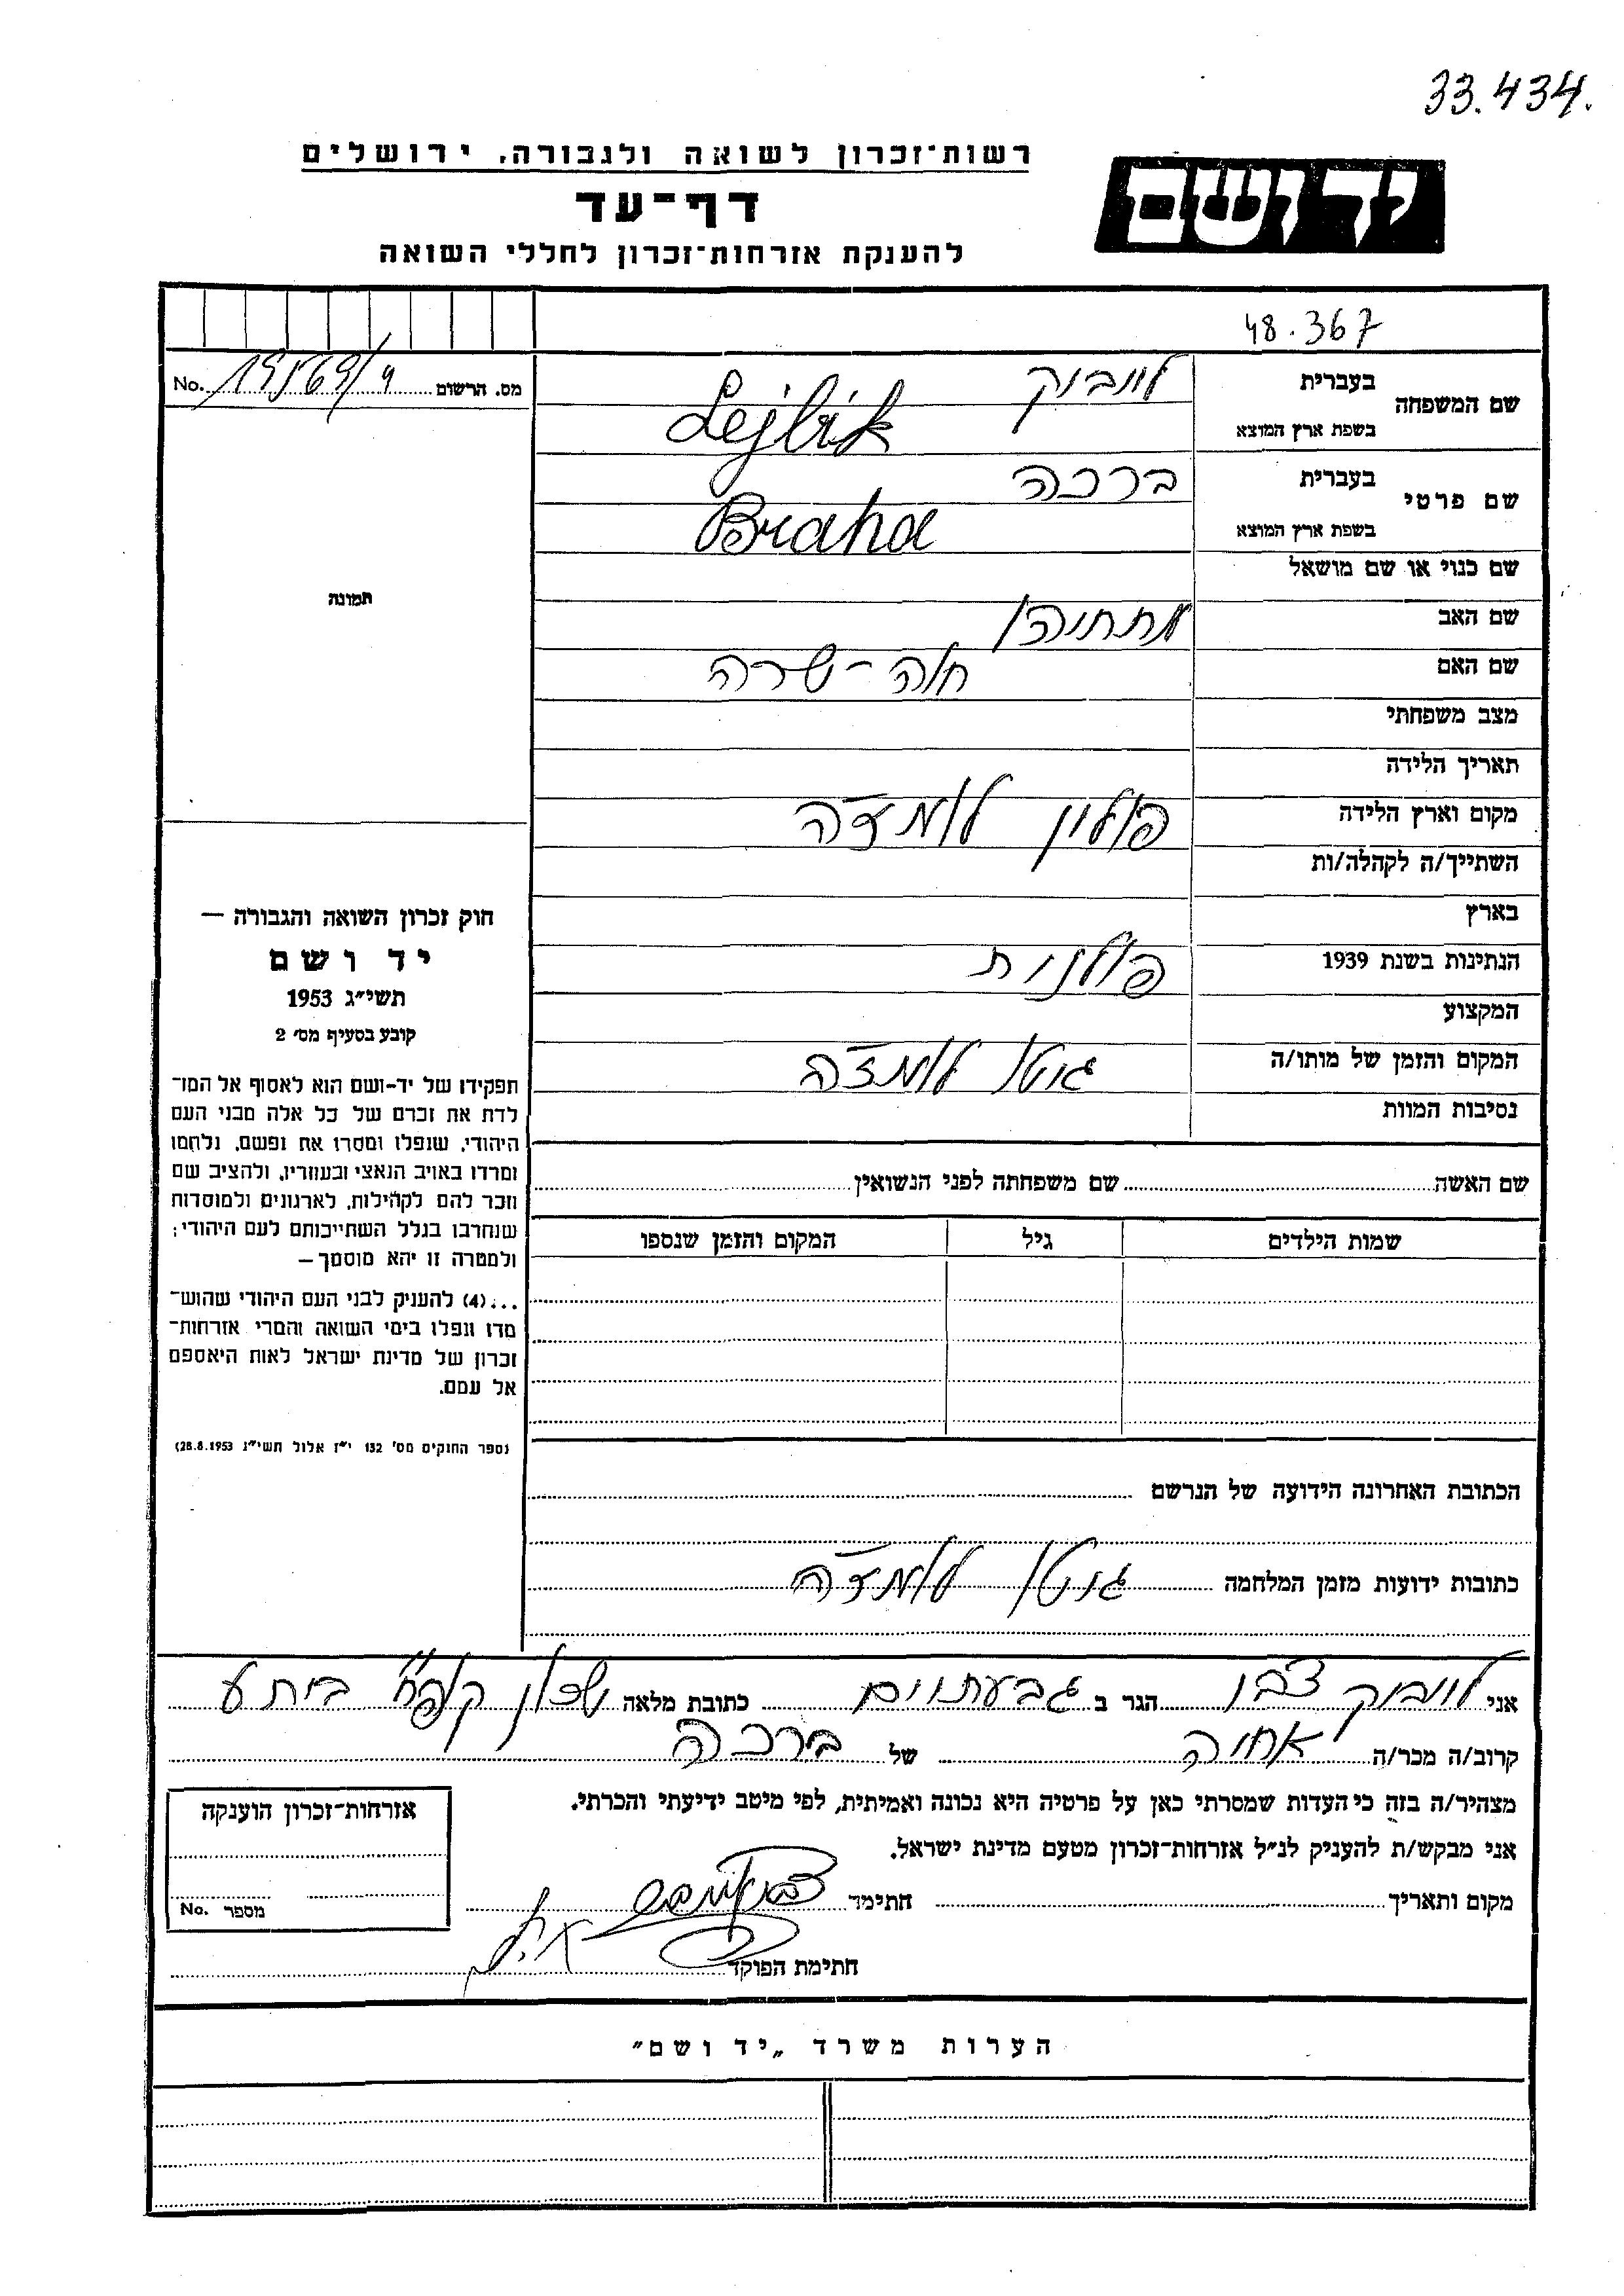 33.434.
רשות־זכרון לשואה ולגבורה, ירושלים
יד ושם
דף־עד
להענקת אזרחות־זכרון לחללי השואה
48.367
שם המשפחה בעברית לייבוק
בשפת ארץ המוצא Lejbik
מס. הרשום No.
שם פרטי בעברית ברכה
בשפת ארץ המוצא Braha
שם כנוי או שם מושאל
תמונה
שם האב מתתיהו
שם האם חוה - שרה
מצב משפחתי
תאריך הלידה
מקום וארץ הלידה פולין לומז'ה
השתייך/ה לקהלה/ות
בארץ
הנתינות בשנת 1939 פולנית
המקצוע
המקום והזמן של מותו/ה גיטו לומז'ה
נסיבות המוות
חוק זכרון השואה והגבורה —
יד ושם
תשי״ג 1953
קובע בסעיף מס׳ 2
תפקידו של יד-ושם הוא לאסוף אל המו־
לדת את זכרם של כל אלה מבני העם
היהודי, שנפלו ומסרו את נפשם, נלחמו
ומרדו באויב הנאצי ובעוזריו, ולהציב שם
וזכר להם לקהילות, לארגונים ולמוסדות
שנחרבו בגלל השתייכותם לעם היהודי;
ולמטרה זו יהא מוסמך —
...(4) להעניק לבני העם היהודי שהוש־
מדו ונפלו בימי השואה והמרי אזרחות־
זכרון של מדינת ישראל לאות היאספם
אל עמם.
(ספר החוקים מס׳ 132 י״ז אלול תשי״ג 28.8.1953)
שם האשה שם משפחתה לפני הנשואין
שמות הילדים גיל המקום והזמן שנספו
הכתובת האחרונה הידועה של הנרשם
כתובות ידועות מזמן המלחמה גיטו לומז'ה
אני לייבוק צבי הגר ב גבעתיים כתובת מלאה שכון
קרוב/ה מכר/ה אחיה של ברכה
מצהיר/ה בזה כי העדות שמסרתי כאן על פרטיה היא נכונה ואמיתית, לפי מיטב ידיעתי והכרתי.
אני מבקש/ת להעניק לנ״ל אזרחות־זכרון מטעם מדינת ישראל.
מקום ותאריך חתימה
חתימת הפוקד
אזרחות־זכרון הוענקה
מספר No.
הערות משרד „יד ושם״